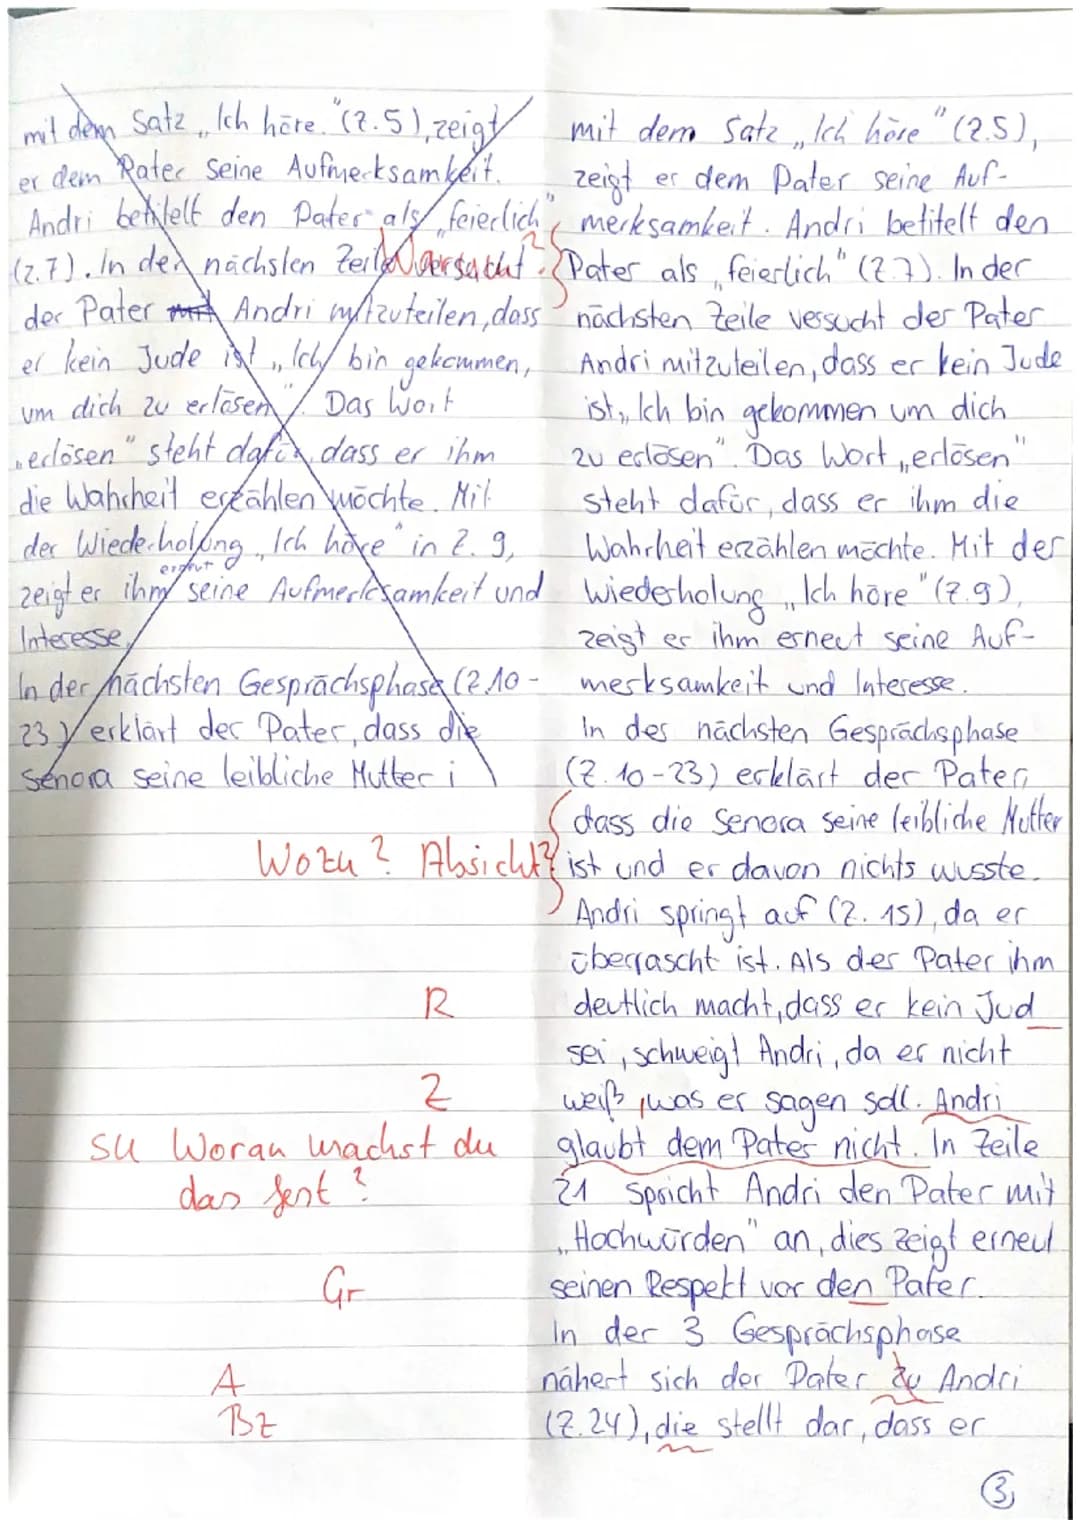 mit dem Satz „Ich höre."(Z.5), zeigt
er dem Pater seine Aufmerksamkeit.
Andri betitelt den Pater als „feierlich"
(Z.7). In der nächsten Zeile versucht
der Pater mit Andri mitzuteilen, dass
er kein Jude ist „Ich bin gekommen,
um dich zu erlösen". Das Wort
„erlösen" steht dafür, dass er ihm
die Wahrheit erzählen möchte. Mit
der Wiederholung „Ich höre" in Z. 9,
erneut
zeigt er ihm seine Aufmerksamkeit und
Interesse.
In der nächsten Gesprächsphase (Z.10-
23) erklärt der Pater, dass die
Senora seine leibliche Mutter i
Wozu? Absicht?
R
Z
SU Woran machst du
das fest?
Gr
A
BZ
mit dem Satz „Ich höre" (Z.5),
zeigt er dem Pater seine Auf-
merksamkeit. Andri betitelt den
Pater als „feierlich" (Z.7). In der
nächsten Zeile versucht der Pater
Andri mitzuteilen, dass er kein Jude
ist „Ich bin gekommen um dich
zu erlösen". Das Wort „erlösen"
steht dafür, dass er ihm die
Wahrheit erzählen möchte. Mit der
Wiederholung „Ich höre" (Z.9),
zeigt er ihm erneut seine Auf-
merksamkeit und Interesse.
In der nächsten Gesprächsphase
(Z.10-23) erklärt der Pater,
dass die Senora seine leibliche Mutter
ist und er davon nichts wusste.
Andri springt auf (Z. 15), da er
überrascht ist. Als der Pater ihm
deutlich macht, dass er kein Jud
sei, schweigt Andri, da er nicht
weiß, was er sagen soll. Andri
glaubt dem Pater nicht. In Zeile
21 spricht Andri den Pater mit
„Hochwürden" an, dies zeigt erneut
seinen Respekt vor den Pater.
In der 3 Gesprächsphase
nähert sich der Pater zu Andri
(Z.24), die stellt dar, dass er
3